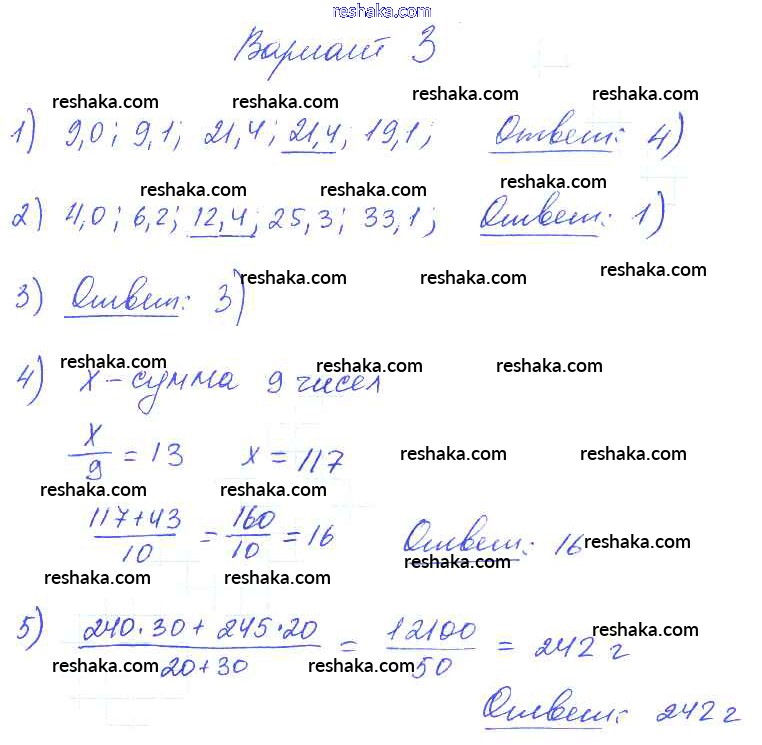 reshaka.com
Вариант 3
reshaka.com reshaka.com reshaka.com reshaka.com
1) 9,0; 9,1; 21,4; 21,4; 19,1; Ответ: 4)
reshaka.com reshaka.com reshaka.com
2) 4,0; 6,2; 12,4; 25,3; 33,1; Ответ: 1)
reshaka.com reshaka.com reshaka.com
3) Ответ: 3)
reshaka.com reshaka.com reshaka.com
4) x - сумма 9 чисел
x/9 = 13 x = 117 reshaka.com reshaka.com
reshaka.com reshaka.com
117+43/10 = 160/10 = 16 Ответ: 16 reshaka.com
reshaka.com reshaka.com reshaka.com
5) 240·30+245·20/20+30 = 12100/50 = 242 г reshaka.com
reshaka.com reshaka.com reshaka.com
Ответ: 242 г